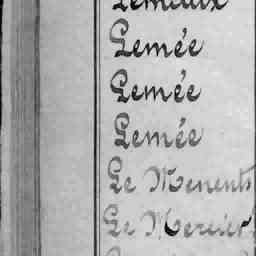 Lemaux
Lemée
Lemée
Lemée
Le Menents
Le Mercier